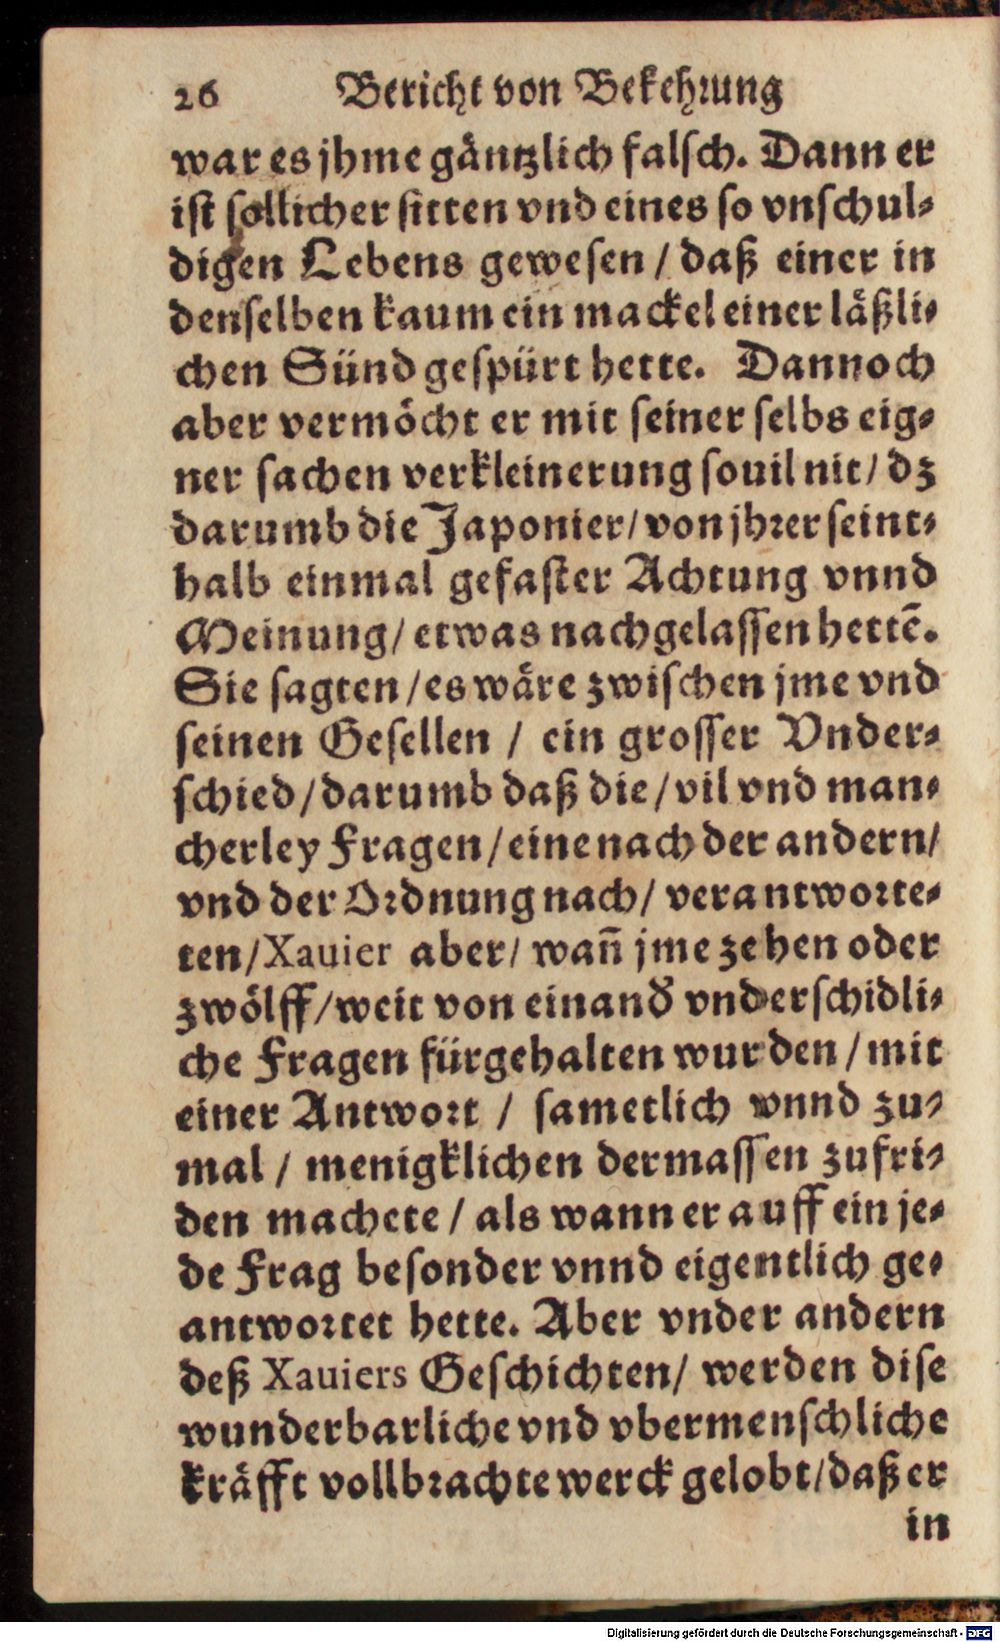 26 Bericht von Bekehrung
war es jhme gäntzlich falsch. Dann er
ist sollicher sitten vnd eines so vnschul-
digen Lebens gewesen / daß einer in
denselben kaum ein mackel einer läßli-
chen Sünd gespürt hette. Dannoch
aber vermöcht er mit seiner selbs eig-
ner sachen verkleinerung souil nit / dz
darumb die Japonier / von jhrer seint-
halb einmal gefaster Achtung vnnd
Meinung / etwas nachgelassen hettē.
Sie sagten / es wäre zwischen jme vnd
seinen Gesellen / ein grosser Vnder-
schied / darumb daß die / vil vnd man-
cherley Fragen / eine nach der andern /
vnd der Ordnung nach / verantworte-
ten / Xauier aber / wañ jme zehen oder
zwölff / weit von einand vnderschidli-
che Fragen fürgehalten wurden / mit
einer Antwort / sametlich vnnd zu-
mal / menigklichen dermassen zufri-
den machete / als wann er auff ein je-
de Frag besonder vnnd eigentlich ge-
antwortet hette. Aber vnder andern
deß Xauiers Geschichten / werden dise
wunderbarliche vnd vbermenschliche
kräfft vollbrachte werck gelobt / daß er
in
Digitalisierung gefördert durch die Deutsche Forschungsgemeinschaft - DFG